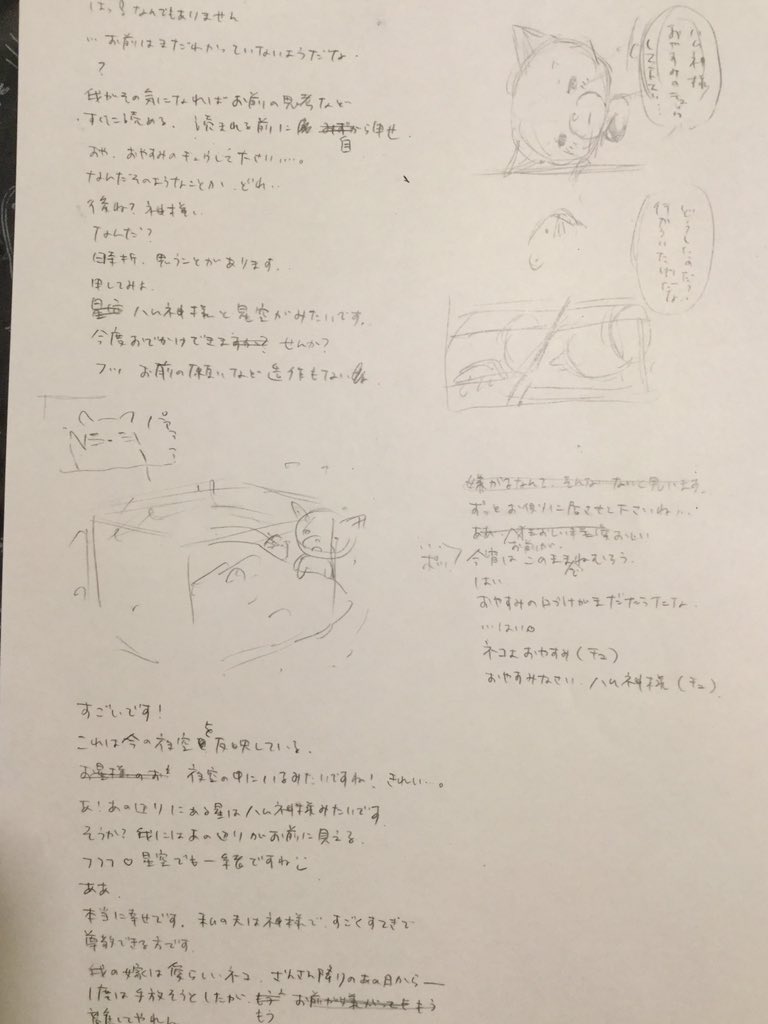 はっ!なんでもありません
…お前はまだわかっていないようだな
?
我がその気になればお前の思考など
すぐに読める。読まれる前に 自から申せ
おや、おやすみのチュウして下さい…。
なんだそのようなことか、どれ…
後ね?神様…
なんだ?
時折、思うことがあります。
申してみよ
ハム神様と星空がみたいです。
今度おでかけできませんか?
フッ お前の願いなど造作もない
すごいです!
これは今の夜空を反映している。
お星様のお 夜空の中にいるみたいですね!きれい…。
あ!あの辺りにある星はハム神様みたいです
そうか?我にはあの辺りがお前に見える
フフフ♡星空でも一緒ですね
ああ
本当に幸せです。私の夫は神様で、すごくすてきで
尊敬できる方です
我の嫁は愛らしいネコ。さんさん降りのあの日から—
1度は手放そうとしたが、 お前が嫌がっても もう
離してやれん
ハム神様
おやすみのチュウ
して
どうしたのだ?
嫌がるなんて、そんな ないと思います。
ずっとお側りに居させて下さいね…
お前が
…ポッ
今宵はこのままねむろう。
はい
おやすみの口づけがまだだったな
…はい
ネコよおやすみ(チュ)
おやすみなさい、ハム神様(チュ)